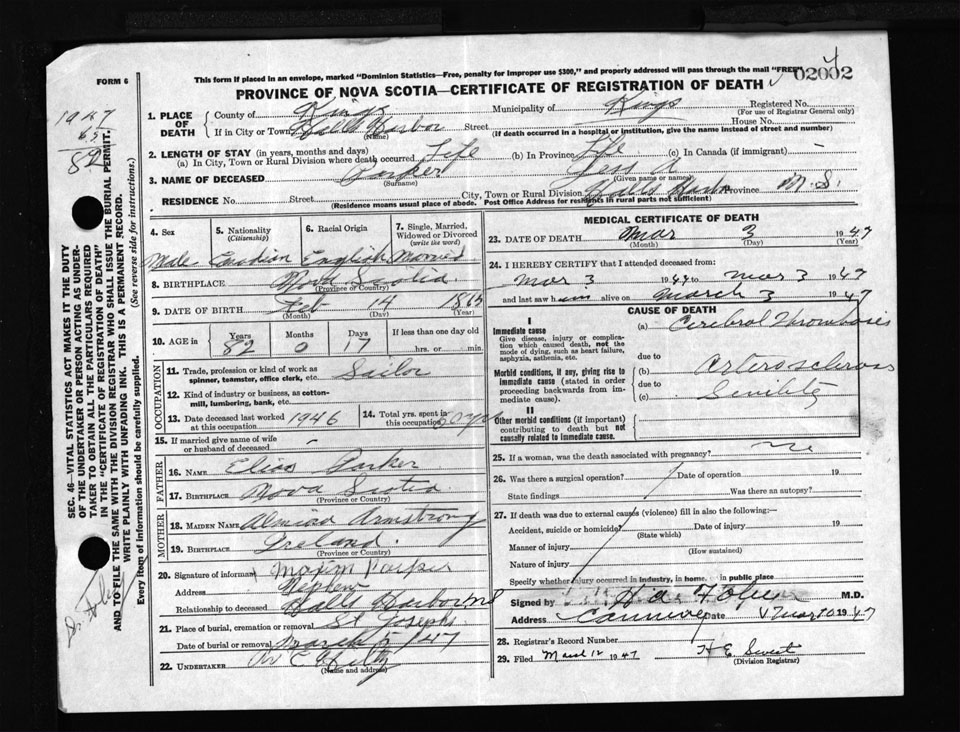 FORM 6
This form if placed in an envelope, marked "Dominion Statistics—Free, penalty for improper use $300," and properly addressed will pass through the mail "FREE"
02002
PROVINCE OF NOVA SCOTIA—CERTIFICATE OF REGISTRATION OF DEATH
1947
65
82
SEC. 46—VITAL STATISTICS ACT MAKES IT THE DUTY
OF THE UNDERTAKER OR PERSON ACTING AS UNDER-
TAKER TO OBTAIN ALL THE PARTICULARS REQUIRED
IN THE "CERTIFICATE OF REGISTRATION OF DEATH"
AND TO FILE THE SAME WITH THE DIVISION REGISTRAR WHO SHALL ISSUE THE BURIAL PERMIT.
WRITE PLAINLY WITH UNFADING INK. THIS IS A PERMANENT RECORD.
Every item of information should be carefully supplied. (See reverse side for instructions.)
1. PLACE OF DEATH
County of Kings Municipality of Kings Registered No.
(For use of Registrar General only)
If in City or Town Halls Harbor Street House No.
(Name) (If death occurred in a hospital or institution, give the name instead of street and number)
2. LENGTH OF STAY (in years, months and days)
(a) In City, Town or Rural Division where death occurred Life (b) In Province Life (c) In Canada (if immigrant) -
3. NAME OF DECEASED Parker Jess A
(Surname) (Given name or names)
RESIDENCE No. Street City, Town or Rural Division Halls Harbor Province N.S.
(Residence means usual place of abode. Post Office Address for residents in rural parts not sufficient)
4. Sex 5. Nationality (Citizenship) 6. Racial Origin 7. Single, Married, Widowed or Divorced (write the word)
Male Canadian English Married
8. BIRTHPLACE Nova Scotia
(Province or Country)
9. DATE OF BIRTH Feb 14 1865
(Month) (Day) (Year)
10. AGE in Years Months Days If less than one day old
82 0 17 hrs. or min.
OCCUPATION
11. Trade, profession or kind of work as spinner, teamster, office clerk, etc. Sailor
12. Kind of industry or business, as cotton-mill, lumbering, bank, etc.
13. Date deceased last worked at this occupation 1946
14. Total yrs. spent in this occupation 60 yrs
15. If married give name of wife or husband of deceased -
FATHER
16. NAME Elias Parker
17. BIRTHPLACE Nova Scotia
(Province or Country)
MOTHER
18. MAIDEN NAME Almira Armstrong
19. BIRTHPLACE Ireland.
(Province or Country)
20. Signature of informant Parker
Address Nephew
Relationship to deceased Halls Harbor NS
21. Place of burial, cremation or removal St Josephs
Date of burial or removal March 5 / 47
22. UNDERTAKER
(Name and address)
MEDICAL CERTIFICATE OF DEATH
23. DATE OF DEATH Mar 3 1947
(Month) (Day) (Year)
24. I HEREBY CERTIFY that I attended deceased from:
Mar 3 1947 to Mar 3 1947
and last saw him alive on March 3 1947
CAUSE OF DEATH
I
Immediate cause
Give disease, injury or complication which caused death, not the mode of dying, such as heart failure, asphyxia, asthenia, etc.
(a) Cerebral Thrombosis
due to
Morbid conditions, if any, giving rise to immediate cause (stated in order proceeding backwards from immediate cause).
(b) Arterosclerosis
due to
(c) Senility
II
Other morbid conditions (if important) contributing to death but not causally related to immediate cause.
25. If a woman, was the death associated with pregnancy? no
26. Was there a surgical operation? Date of operation 19
State findings Was there an autopsy?
27. If death was due to external causes (violence) fill in also the following:—
Accident, suicide or homicide? Date of injury 19
(State which)
Manner of injury
(How sustained)
Nature of injury
Specify whether injury occurred in industry, in home, in public place
Signed by M.D.
Address Date Mar 10 1947
28. Registrar's Record Number
29. Filed March 12 1947 H E Sweet
(Division Registrar)